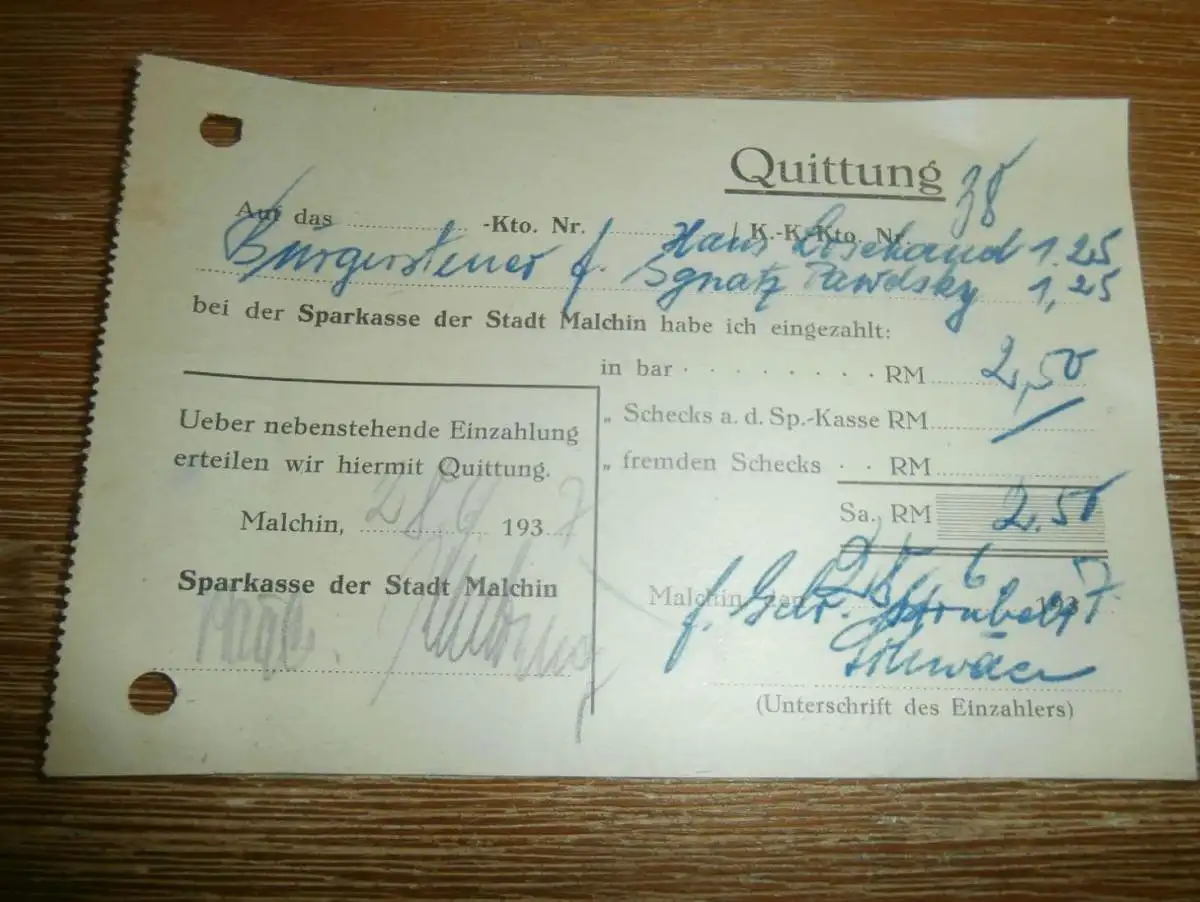 Quittung 38
Auf das -Kto. Nr. / K.-K-Kto. Nr.
Bürgersteuer f. Hans 1.25
Ignatz 1,25
bei der Sparkasse der Stadt Malchin habe ich eingezahlt:
in bar RM 2,50
„ Schecks a. d. Sp.-Kasse RM
„ fremden Schecks RM
Sa. RM 2.50
Ueber nebenstehende Einzahlung
erteilen wir hiermit Quittung.
Malchin, 28 6 1937
Sparkasse der Stadt Malchin
Malchin, den 6 1937
f. Gebr.
(Unterschrift des Einzahlers)